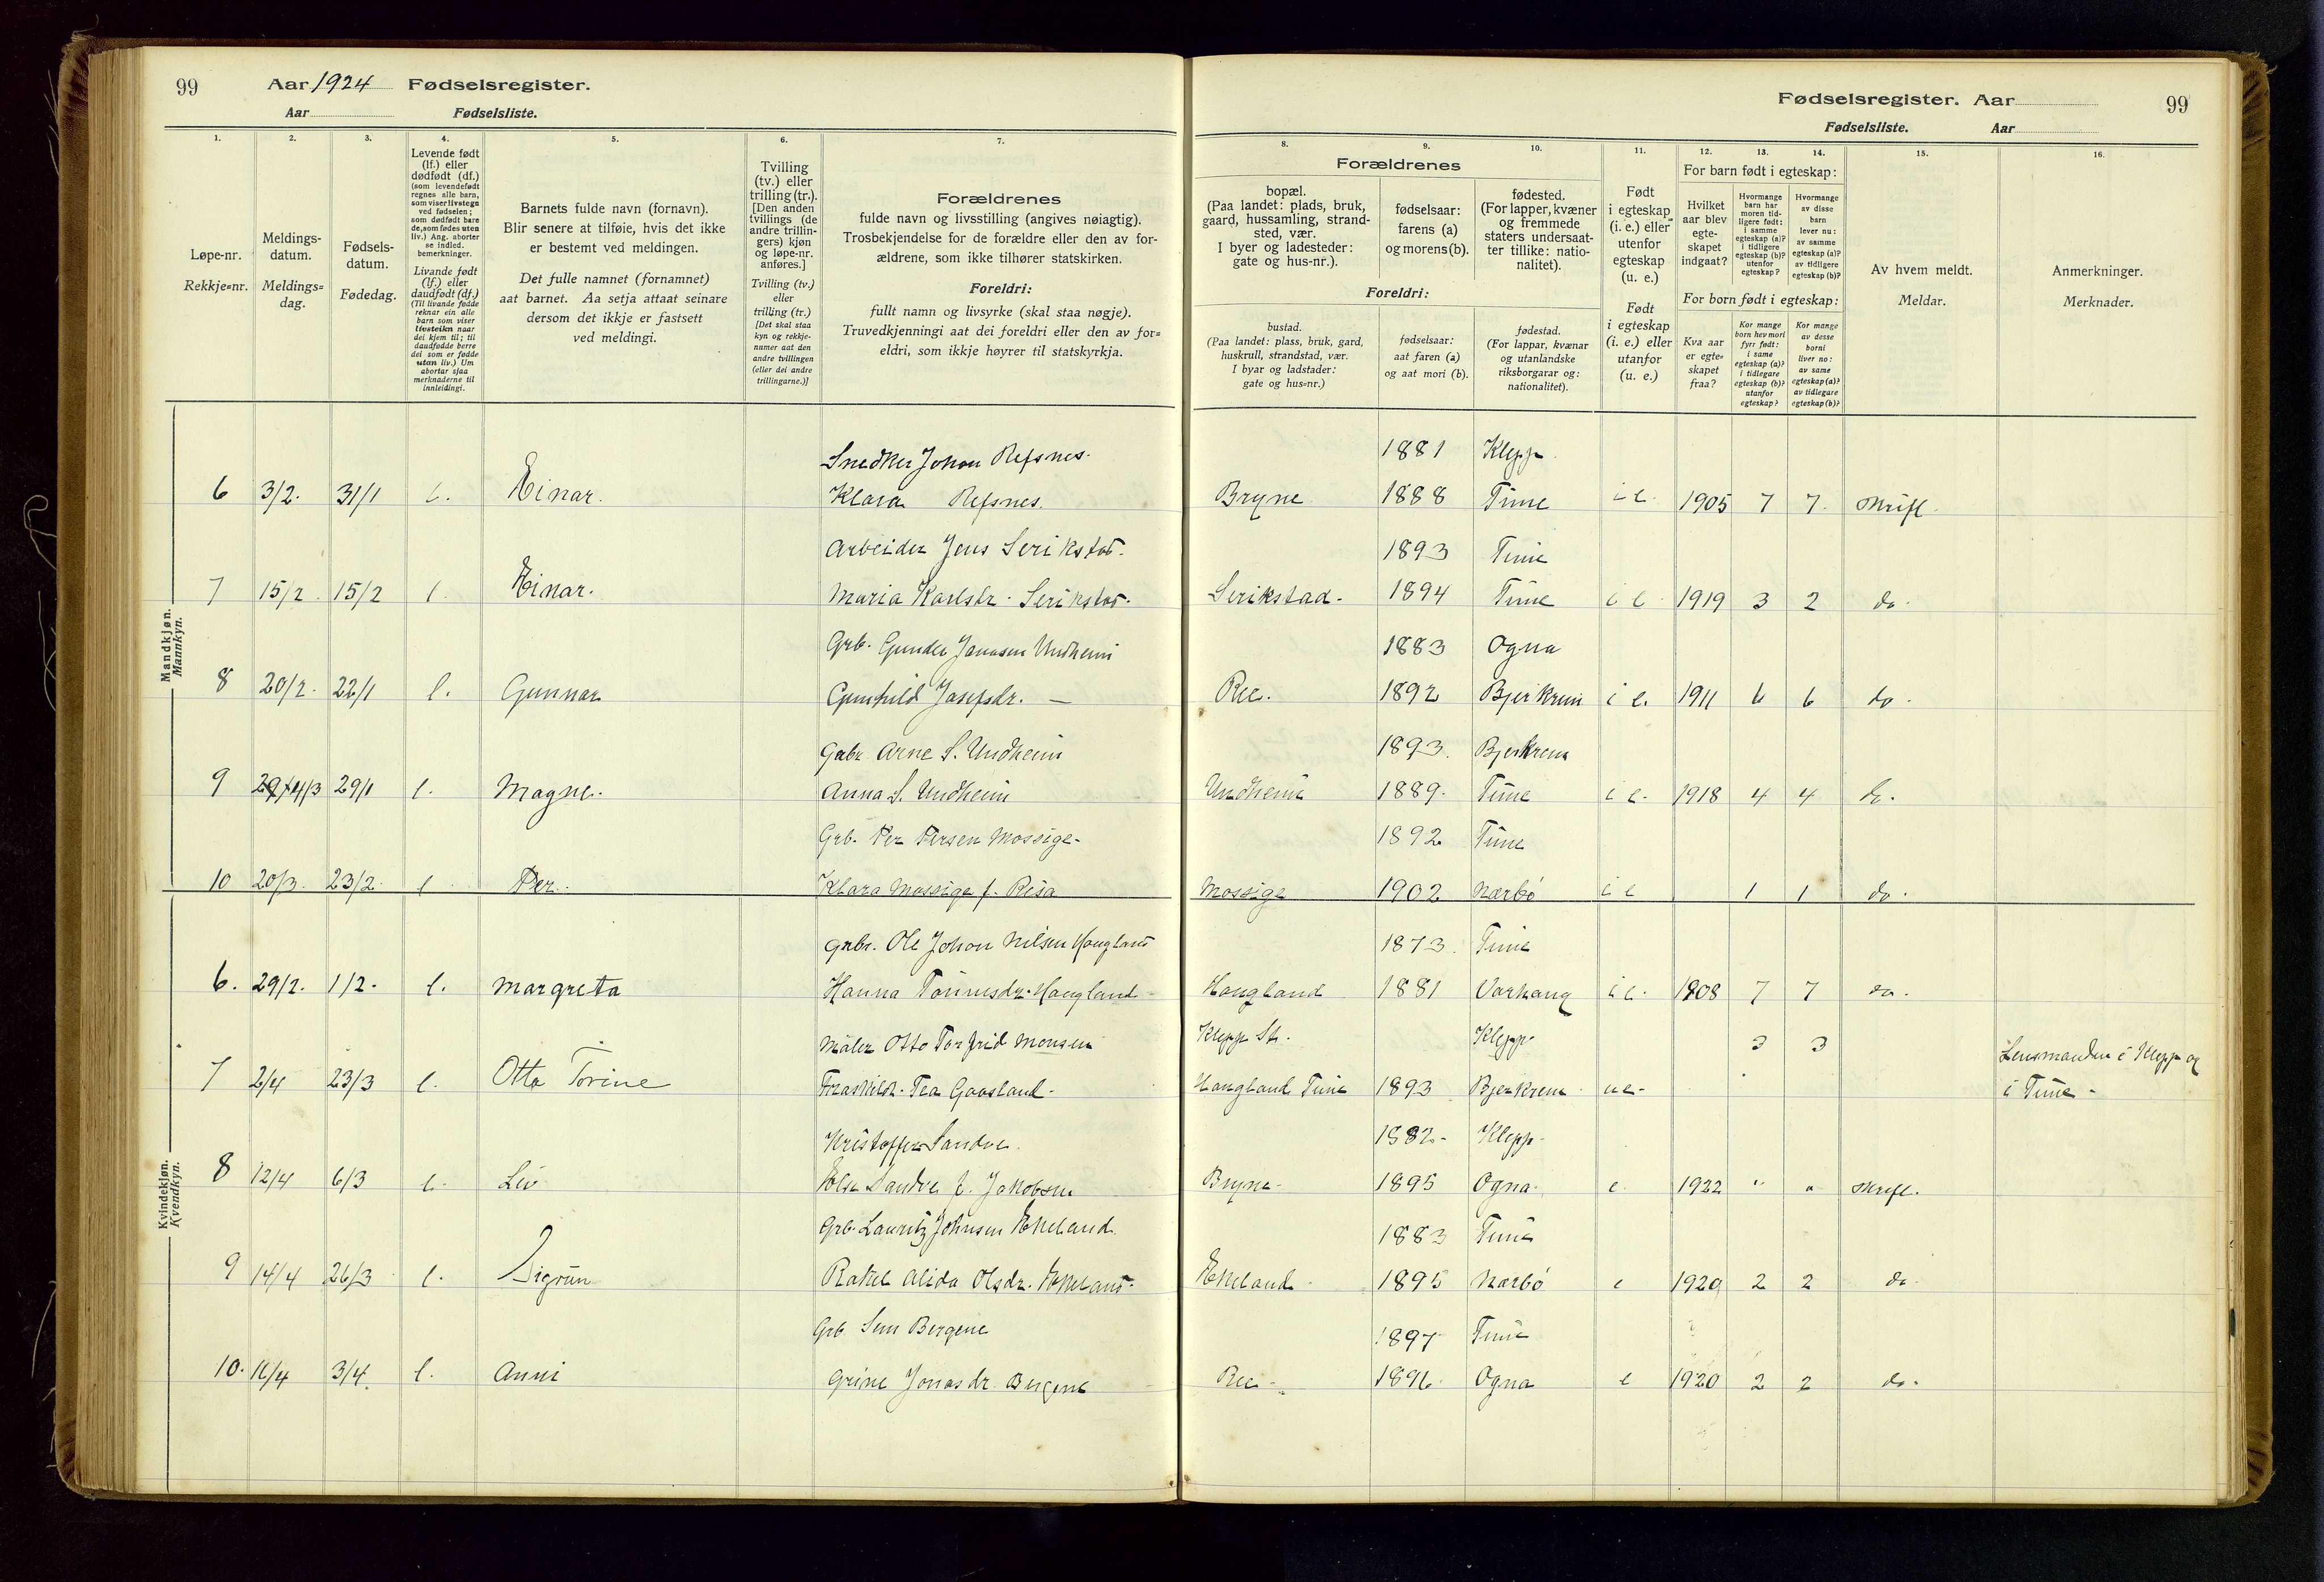 99 Aar 1924 Fødselsregister.
Aar Fødselsliste.
Fødselsregister. Aar 99
Fødselsliste. Aar
1. 2. 3. 4. 5. 6. 7.
Løpe-nr.
Rekkje=nr.
Meldings-
datum.
Meldings=
dag.
Fødsels-
datum.
Fødedag.
Levende født
(lf.) eller
dødfødt (df.)
(som levendefødt
regnes alle barn,
som viser livstegn
ved fødselen;
som dødfødt bare
de, som fødes uten
liv.) Ang. aborter
se indled.
bemerkninger.
Livande født
(lf.) eller
daudfødt (df.)
(Til livande fødde
reknar ein alle
barn som viser
livsteikn naar
dei kjem til; til
daudfødde berre
dei som er fødde
utan liv.) Um
abortar sjaa
merknaderne til
innleidingi.
Barnets fulde navn (fornavn).
Blir senere at tilføie, hvis det ikke
er bestemt ved meldingen.
Det fulle namnet (fornamnet)
aat barnet. Aa setja attaat seinare
dersom det ikkje er fastsett
ved meldingi.
Tvilling
(tv.) eller
trilling (tr.).
[Den anden
tvillings (de
andre trillin-
gers) kjøn
og løpe-nr.
anføres.]
Tvilling (tv.)
eller
trilling (tr.)
[Det skal staa
kyn og rekkje-
numer aat den
andre tvillingen
(eller dei andre
trillingarne.)]
Forældrenes
fulde navn og livsstilling (angives nøiagtig).
Trosbekjendelse for de forældre eller den av for-
ældrene, som ikke tilhører statskirken.
Foreldri:
fullt namn og livsyrke (skal staa nøgje).
Truvedkjenningi aat dei foreldri eller den av for=
eldri, som ikkje høyrer til statskyrkja.
8. 9. 10. 11. 12. 13. 14. 15. 16.
Forældrenes
bopæl.
(Paa landet: plads, bruk,
gaard, hussamling, strand-
sted, vær.
I byer og ladesteder:
gate og hus-nr.).
fødselsaar:
farens (a)
og morens (b).
fødested.
(For lapper, kvæner
og fremmede
staters undersaat-
ter tillike: natio-
nalitet).
Foreldri:
bustad.
(Paa landet: plass, bruk, gard,
huskrull, strandstad, vær.
I byar og ladstader:
gate og hus=nr.)
fødselsaar:
aat faren (a)
og aat mori (b).
fødestad.
(For lappar, kvænar
og utanlandske
riksborgarar og:
nationalitet).
Født
i egteskap
(i. e.) eller
utenfor
egteskap
(u. e.)
Født
i egteskap
(i. e.) eller
utanfor
(u. e.)
For barn født i egteskap:
Hvilket
aar blev
egte-
skapet
indgaat?
Hvormange
barn har
moren tid-
ligere født:
i samme
egteskap (a)?
i tidligere
egteskap (b)?
utenfor
egteskap?
Hvormange
av disse
barn
lever nu:
av samme
egteskap (a)?
av tidligere
egteskap (b)?
For born født i egteskap:
Kva aar
er egte=
skapet
fraa?
Kor mange
born hev mori
fyrr født:
i same
egteskap (a)?
i tidlegare
egteskap (b)?
utanfor
egteskap?
Kor mange
av desse
borni
liver no:
av same
egteskap (a)?
av tidlegare
egteskap (b)?
Av hvem meldt.
Meldar.
Anmerkninger.
Merknader.
Mandkjøn.
Mannkyn.
Snedker Johan Refsnes. 1881 Klepp
6 3/2. 31/1 l. Einar. Klara Refsnes. Bryne 1888 Time i e. 1905 7 7. skriftl.
Arbeider Jens Serikstad. 1893 Time
7 15/2. 15/2 l. Einar. Maria Karlsdr. Serikstad. Serikstad. 1894 Time i e. 1919 3 2 do.
Grb. Gunder Jonassen Undheim 1883 Ogna
8 20/2. 22/1 l. Gunnar Gunhild Josefsdr. — Ree. 1892 Bjerkreim i e. 1911 6 6 do.
Grbr. Arne S. Undheim 1893. Bjerkreim
9 29/4/3 29/1 l. Magne. Anna S. Undheim Undheim 1889. Time i e. 1918 4 4 do.
Grb. Per Persen Mossige. 1892 Time
10 20/3. 23/2 l Per. Klara Mossige f. Risa Mossige 1902 Nærbö i e 1 1 do.
Kvindekjøn.
Kvendkyn.
Grbr. Ole Johan Nilsen Haugland 1873 Time
6. 29/2. 1/2. l. Margreta Hanna Tönnesdr. Haugland Haugland 1881 Varhaug i e. 1908 7 7 do.
Maler Otto Torfrid Monsen Klepp St. Klepp 3 3 Lensmanden i Klepp og
7 2/4 23/3 l. Otto Torine Fraskildt Tea Gaasland. Haugland Time 1893 Bjerkrem ue. i Time.
Kristoffer Sandve 1882. Klepp
8 12/4 6/3 l. Liv Else Sandve f. Jakobsen Bryne 1895 Ogna. e. 1922 " " skriftl.
Grb. Lauritz Johnsen Ekeland. 1883 Time
9 14/4 26/3 l. Sigrun Rakel Alida Olsdr. Ekeland. Ekeland 1895 Nærbö e 1920 2 2 do.
Grb. Sem Bergene 1897 Time
10. 11/4 3/4. l. Anni Grine Jonasdr. Bergene Ree 1896 Ogna e 1920 2 2 do.